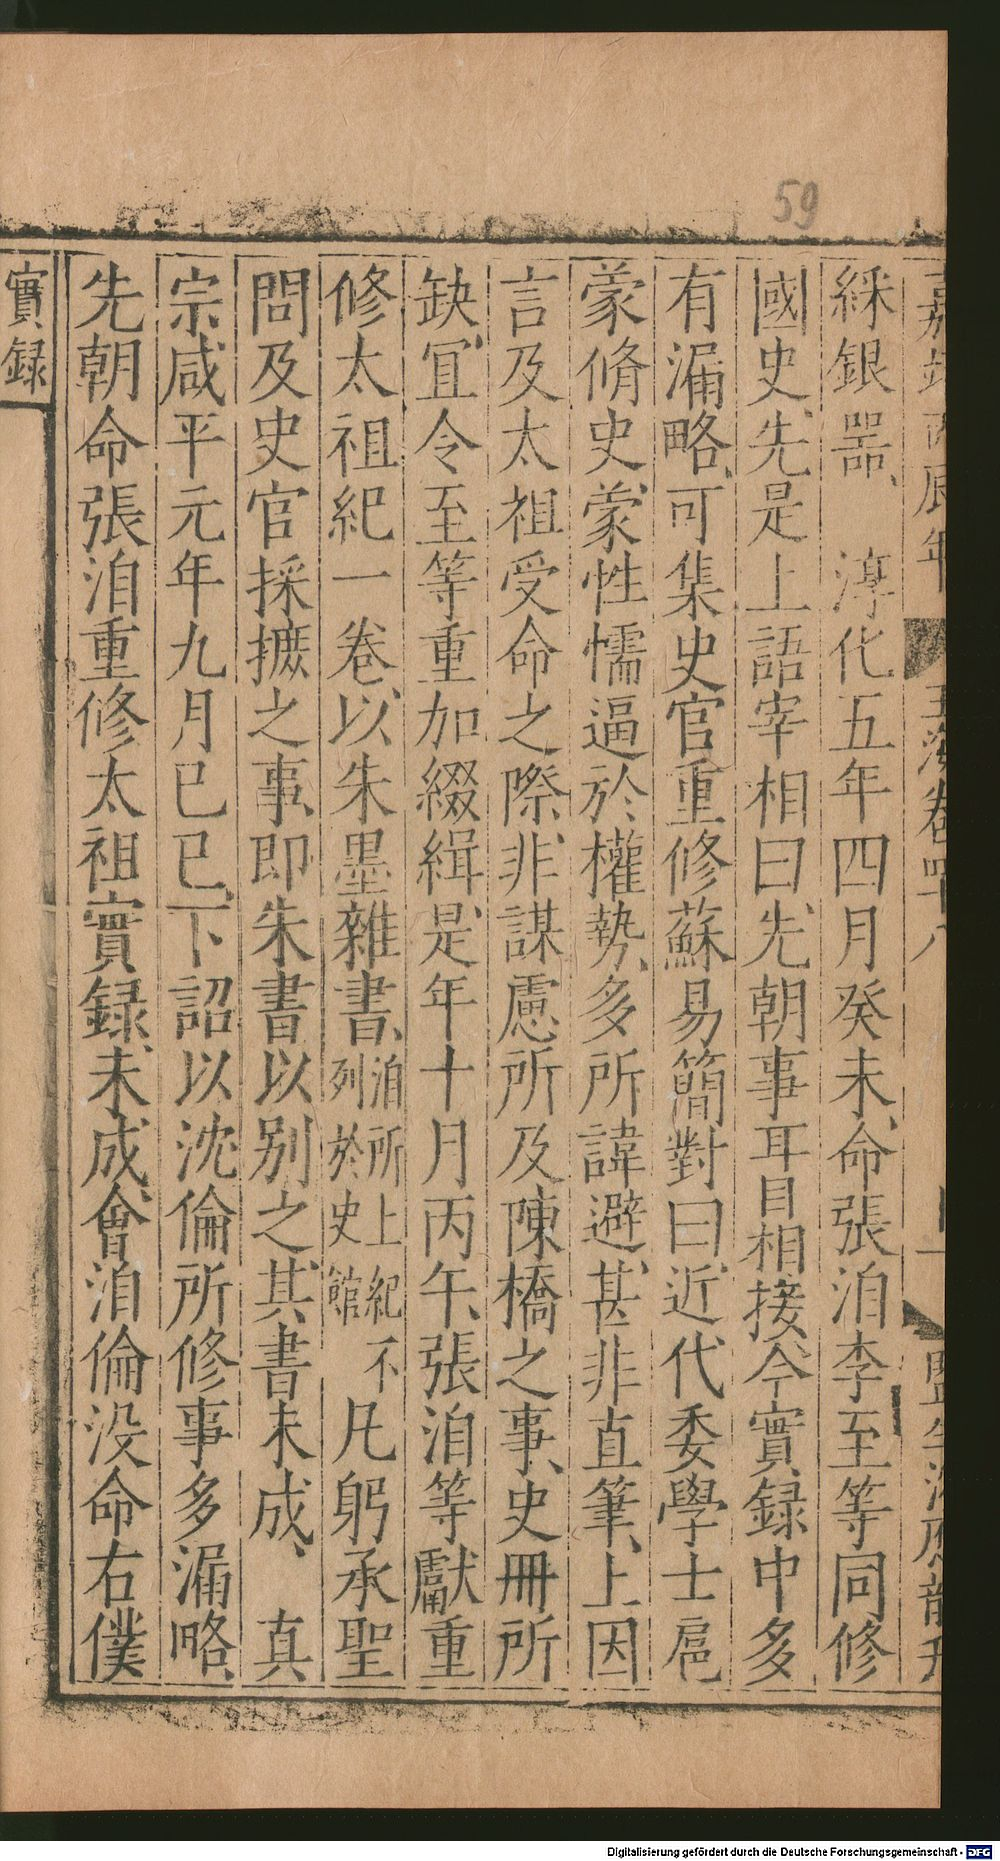 59
嘉靖丙辰年 玉海卷四十八
綵銀器、 淳化五年四月癸未、命張洎李至等同修
國史、先是上語宰相曰、先朝事耳目相接、今實録中多
有漏略、可集史官重修、蘇易簡對曰、近代委學士扈
蒙脩史、蒙性懦逼於權勢、多所諱避、甚非直筆、上因
言及太祖受命之際、非謀慮所及、陳橋之事、史冊所
缺、冝令至等重加綴緝、是年十月丙午、張洎等獻重
修太祖紀一卷、以朱墨雜書、洎所上紀不列於史館 凡躬承聖
問及史官採摭之事、即朱書以别之、其書未成、 真
宗、咸平元年九月已巳、下詔以沈倫所修事多漏略、
先朝命張洎重修太祖實録、未成、會洎倫没、命右僕
實録
Digitalisierung gefördert durch die Deutsche Forschungsgemeinschaft - DFG